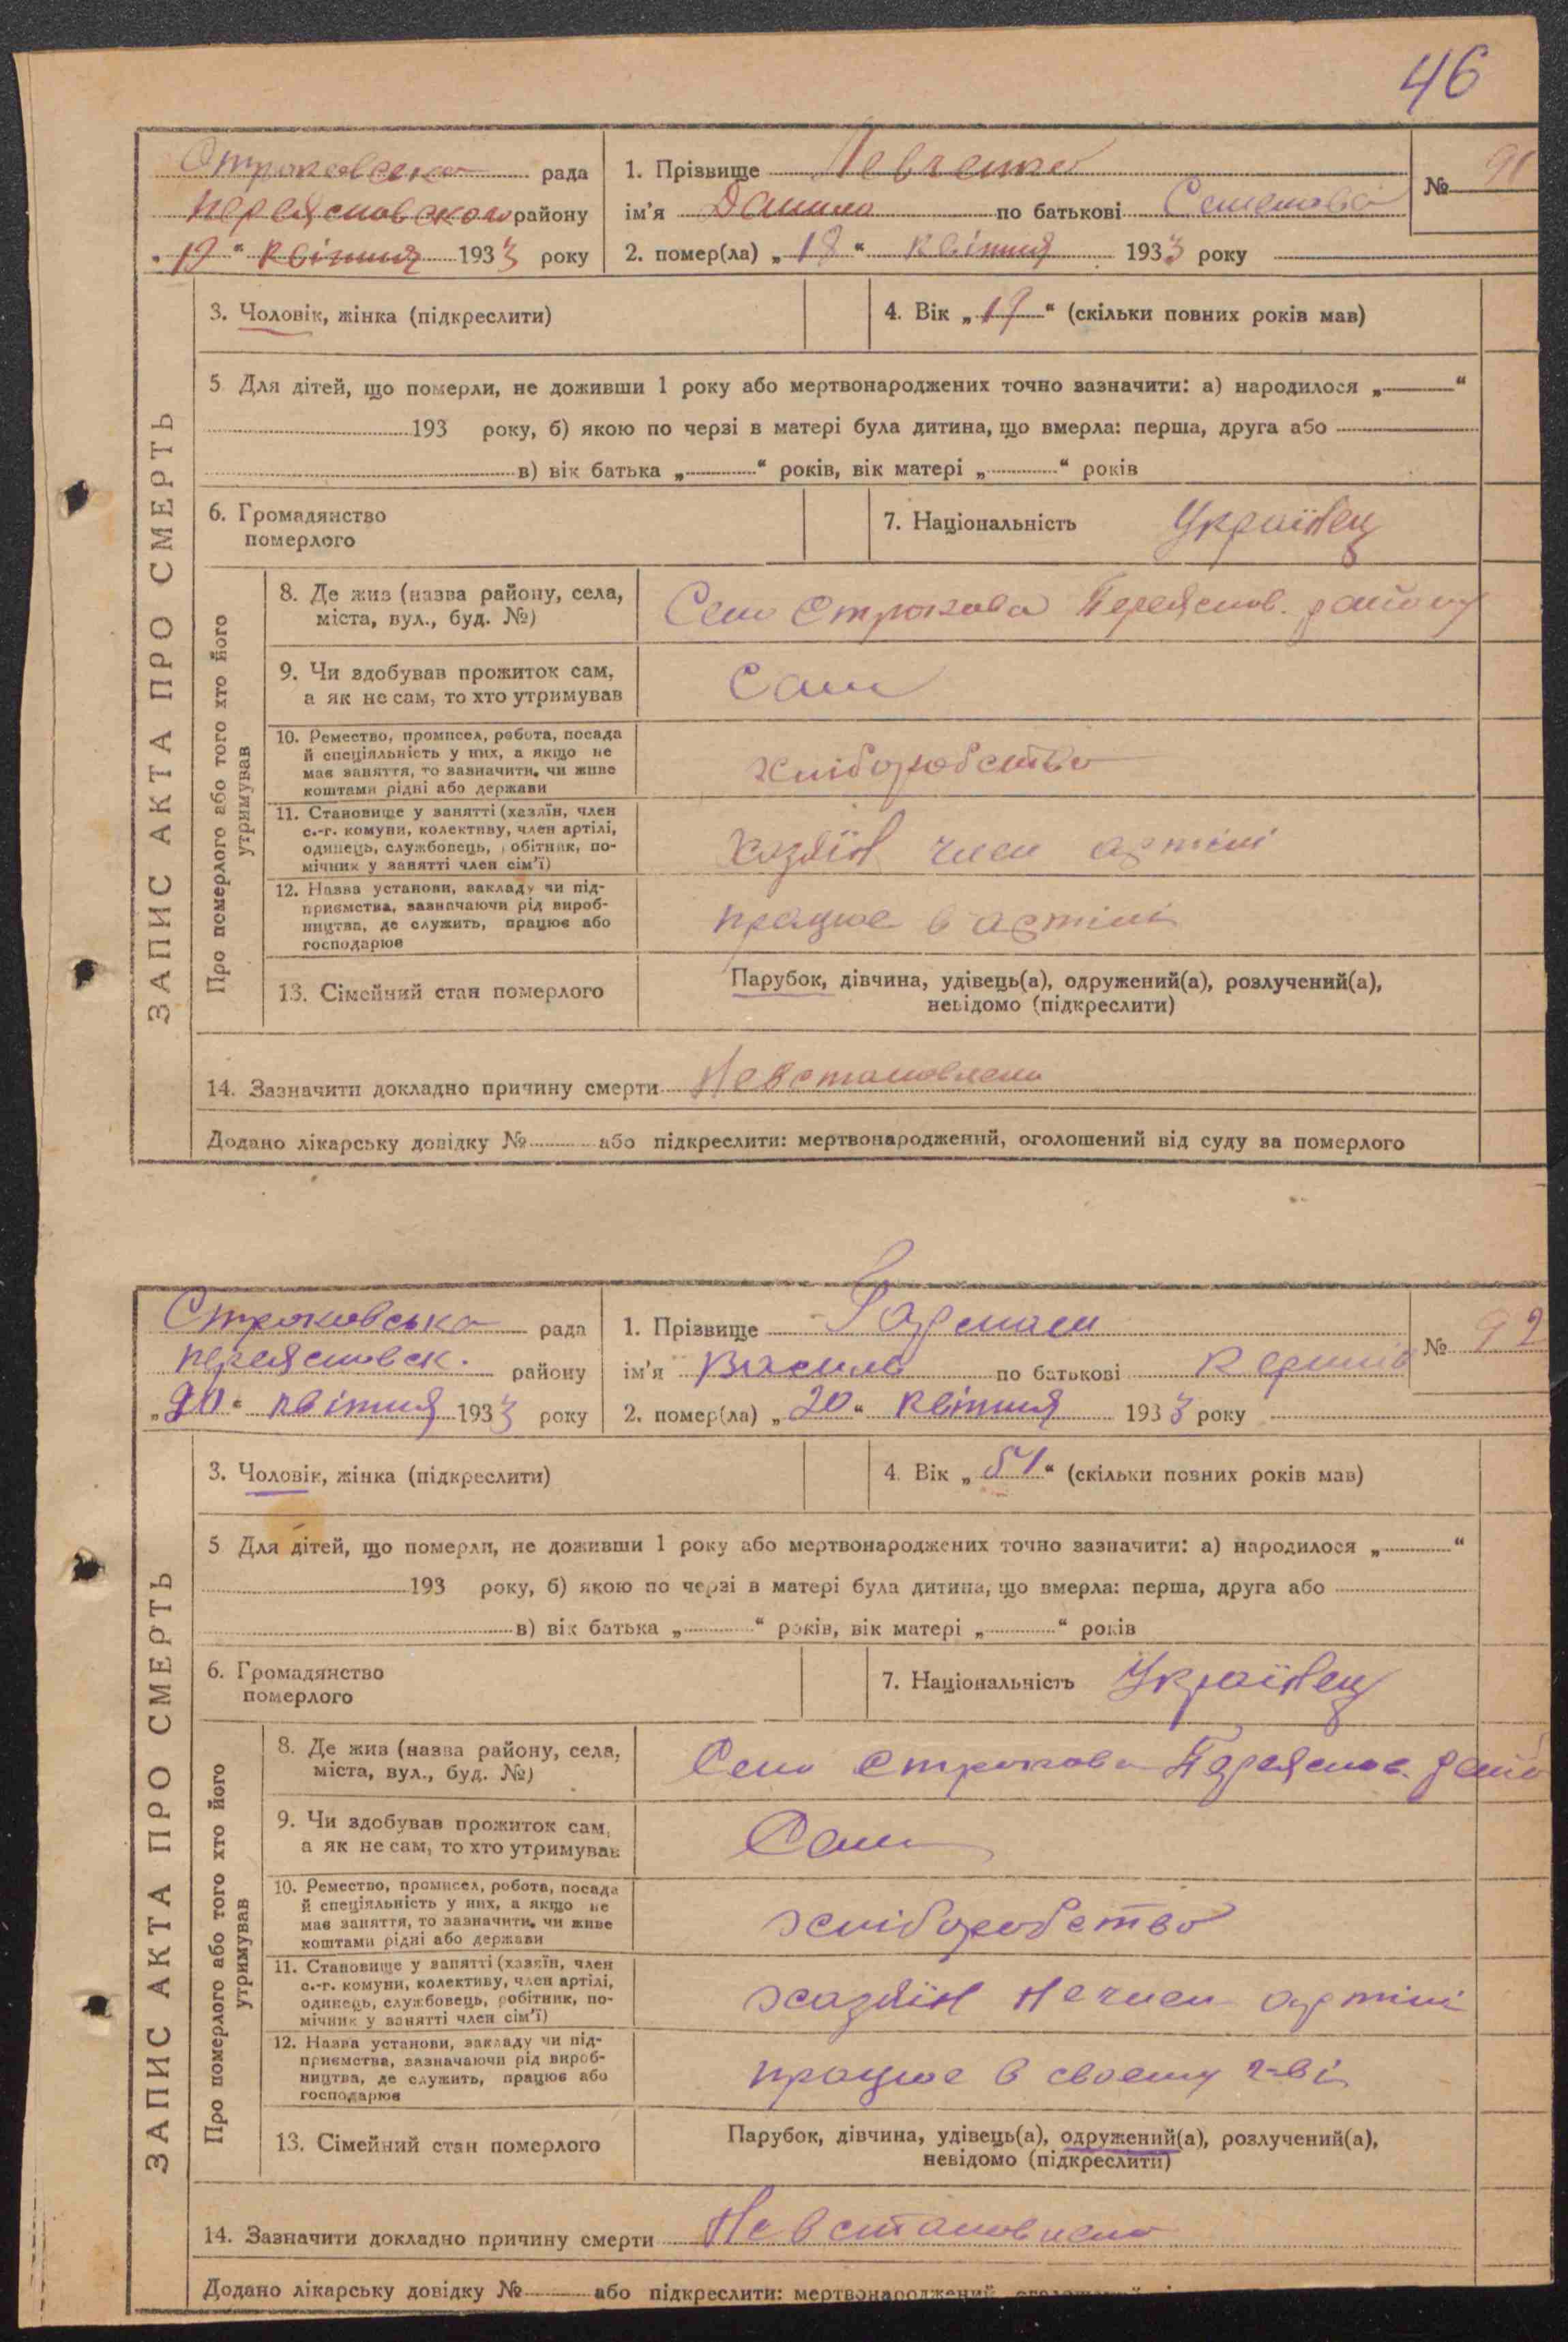 46
Строковська рада
Переяславского району
"19" квітня 1933 року
1. Прізвище Левченко
№ 91
ім'я Данило по батькові Семенові
2. помер(ла) „18“ квітня 1933 року
ЗАПИС АКТА ПРО СМЕРТЬ
3. Чоловік, жінка (підкреслити)
4. Вік „19“ (скільки повних років мав)
5 Для дітей, що померли, не доживши 1 року або мертвонароджених точно зазначити: а) народилося „ “
193 року, б) якою по черзі в матері була дитина, що вмерла: перша, друга або
в) вік батька „ “ років, вік матері „ “ років
6. Громадянство
померлого
7. Національність Українец
Про померлого або того хто його
утримував
8. Де жив (назва району, села,
міста, вул., буд. №)
Село Строкова Переяслов. району
9. Чи здобував прожиток сам,
а як не сам, то хто утримував
Сам
10. Ремество, промисел, робота, посада
й спеціяльність у них, а якщо не
має заняття, то зазначити, чи живе
коштами рідні або держави
хліборобство
11. Становище у занятті (хазяїн, член
с.-г. комуни, колективу, член артілі,
одинець, службовець, робітник, по-
мічник у занятті член сім'ї)
хазяїн член артілі
12. Назва установи, закладу чи під-
приємства, зазначаючи рід вироб-
ництва, де служить, працює або
господарює
працює в артілі
13. Сімейний стан померлого
Парубок, дівчина, удівець(а), одружений(а), розлучений(а),
невідомо (підкреслити)
14. Зазначити докладно причину смерти Невстановлено
Додано лікарську довідку № або підкреслити: мертвонароджений, оголошений від суду за померлого
Строковська рада
Переясловск. району
„20“ квітня 1933 року
1. Прізвище
№ 92
ім'я Василь по батькові
2. помер(ла) „20“ квітня 1933 року
ЗАПИС АКТА ПРО СМЕРТЬ
3. Чоловік, жінка (підкреслити)
4. Вік „51“ (скільки повних років мав)
5 Для дітей, що померли, не доживши 1 року або мертвонароджених точно зазначити: а) народилося „ “
193 року, б) якою по черзі в матері була дитина, що вмерла: перша, друга або
в) вік батька „ “ років, вік матері „ “ років
6. Громадянство
померлого
7. Національність Українец
Про померлого або того хто його
утримував
8. Де жив (назва району, села,
міста, вул., буд. №)
Село Строкова Переяслов. райо
9. Чи здобував прожиток сам,
а як не сам, то хто утримував
Сам
10. Ремество, промисел, робота, посада
й спеціяльність у них, а якщо не
має заняття, то зазначити, чи живе
коштами рідні або держави
хліборобство
11. Становище у занятті (хазяїн, член
с.-г. комуни, колективу, член артілі,
одинець, службовець, робітник, по-
мічник у занятті член сім'ї)
хазяїн не член артілі
12. Назва установи, закладу чи під-
приємства, зазначаючи рід вироб-
ництва, де служить, працює або
господарює
працює в своєму г-ві
13. Сімейний стан померлого
Парубок, дівчина, удівець(а), одружений(а), розлучений(а),
невідомо (підкреслити)
14. Зазначити докладно причину смерти Невстановлено
Додано лікарську довідку № або підкреслити: мертвонароджений